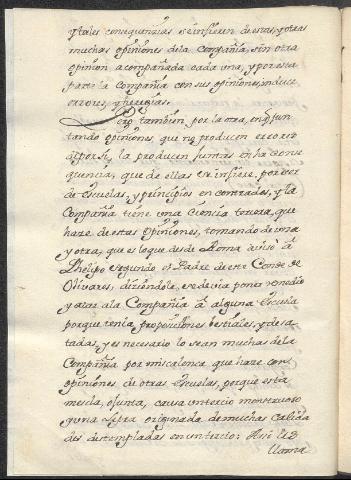 y tales consequenzias se infieren de estas, y otras
muchas opiniones de la Compañia, sin otra
opinion acompañada cada una, y por esta
parte la Compañia con sus opiniones, induce
errores, y heregias.
Pero tambien por la otra, en q̃ jun
tando opiniones, que no producen error
de por si, la producen juntas en la conse
quencia, que de ellas se infiere, por ser
de escuelas, y principios encontrados, y la
Compañia tiene una ciencia tercera, que
haze de estas opiniones, tomando de una
y otra, que es lo que desde Roma avisó á
Phelipo segundo el Padre de este Conde de
Olivares, diziendole, se devia poner remedio
y atar a la Compañia á alguna escuela
porque tenia proposiciones bestiales, y desa
tadas, y es necesario lo sean muchas de la
Compañia por mezcalonca que haze con
opiniones de otras escuelas, porque esta
mezcla, ò junta, causa un tercio monstruoso
y una sexta originada de muchas calida
des destempladas en un tercio:
llama